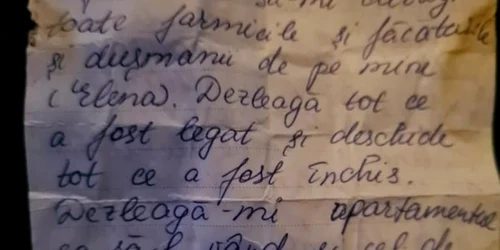 să-mi
toate farmicile și făcăturile
și dușmanii de pe mine
(Elena). Dezleagă tot ce
a fost legat și deschide
tot ce a fost închis.
Dezleagă-mi apartamentul
ca să-l vând